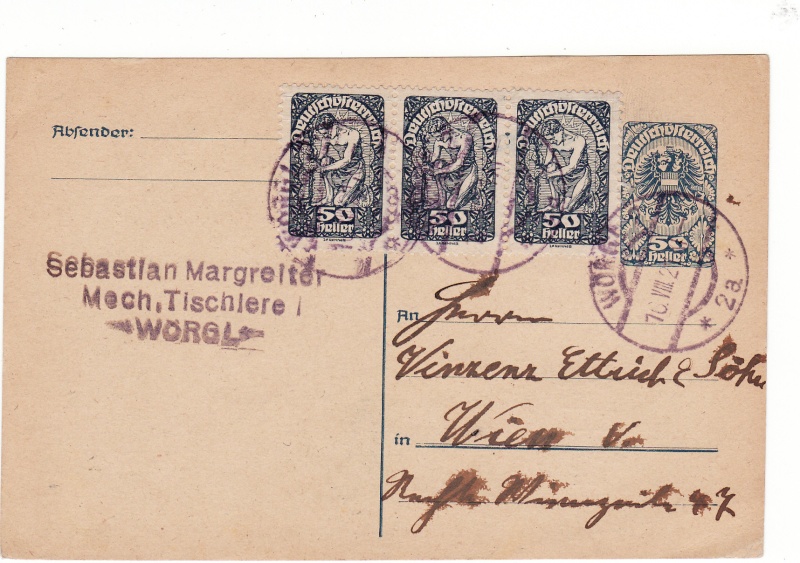 Absender:
Deutschösterreich Deutschösterreich Deutschösterreich Deutschösterreich
50 50 50 50
Heller Heller Heller Heller
WÖRGL
10.VIII.2
* 2a *
Sebastian Margreiter
Mech, Tischlerei
WÖRGL
An Herrn
Vinzenz Ettrich & Söhne
in Wien
Rechte Wienzeile 47